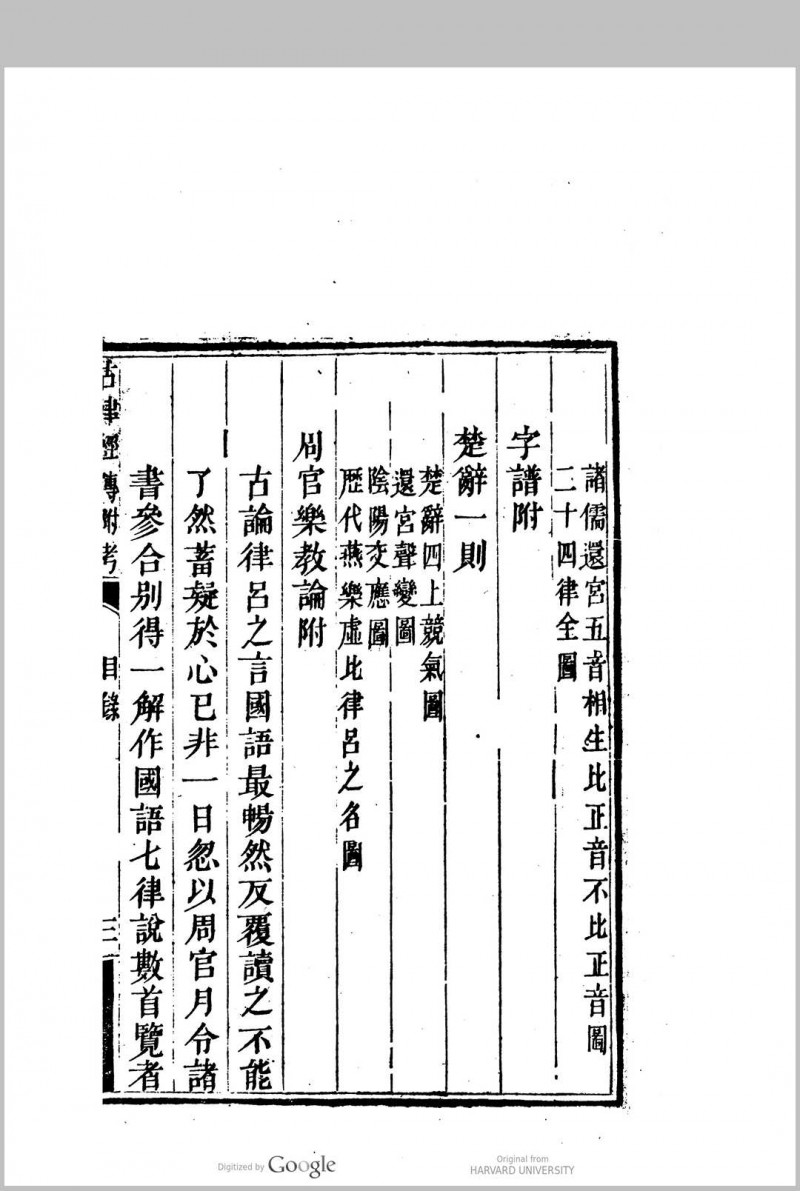 諸儒還宮五音相生比正音不比正音圖
二十四律全圖
字譜附
楚辭一則
楚辭四上競氣圖
還宮聲變圖
陰陽交應圖
歷代燕樂虛比律呂之名圖
周官樂教論附
古論律呂之言國語最暢然反覆讀之不能
了然蓄疑於心已非一日忽以周官月令諸
書參合別得一解作國語七律說數首覽者
古律經傳附考
目錄
三
Digitized by Google
Original from
HARVARD UNIVERSITY